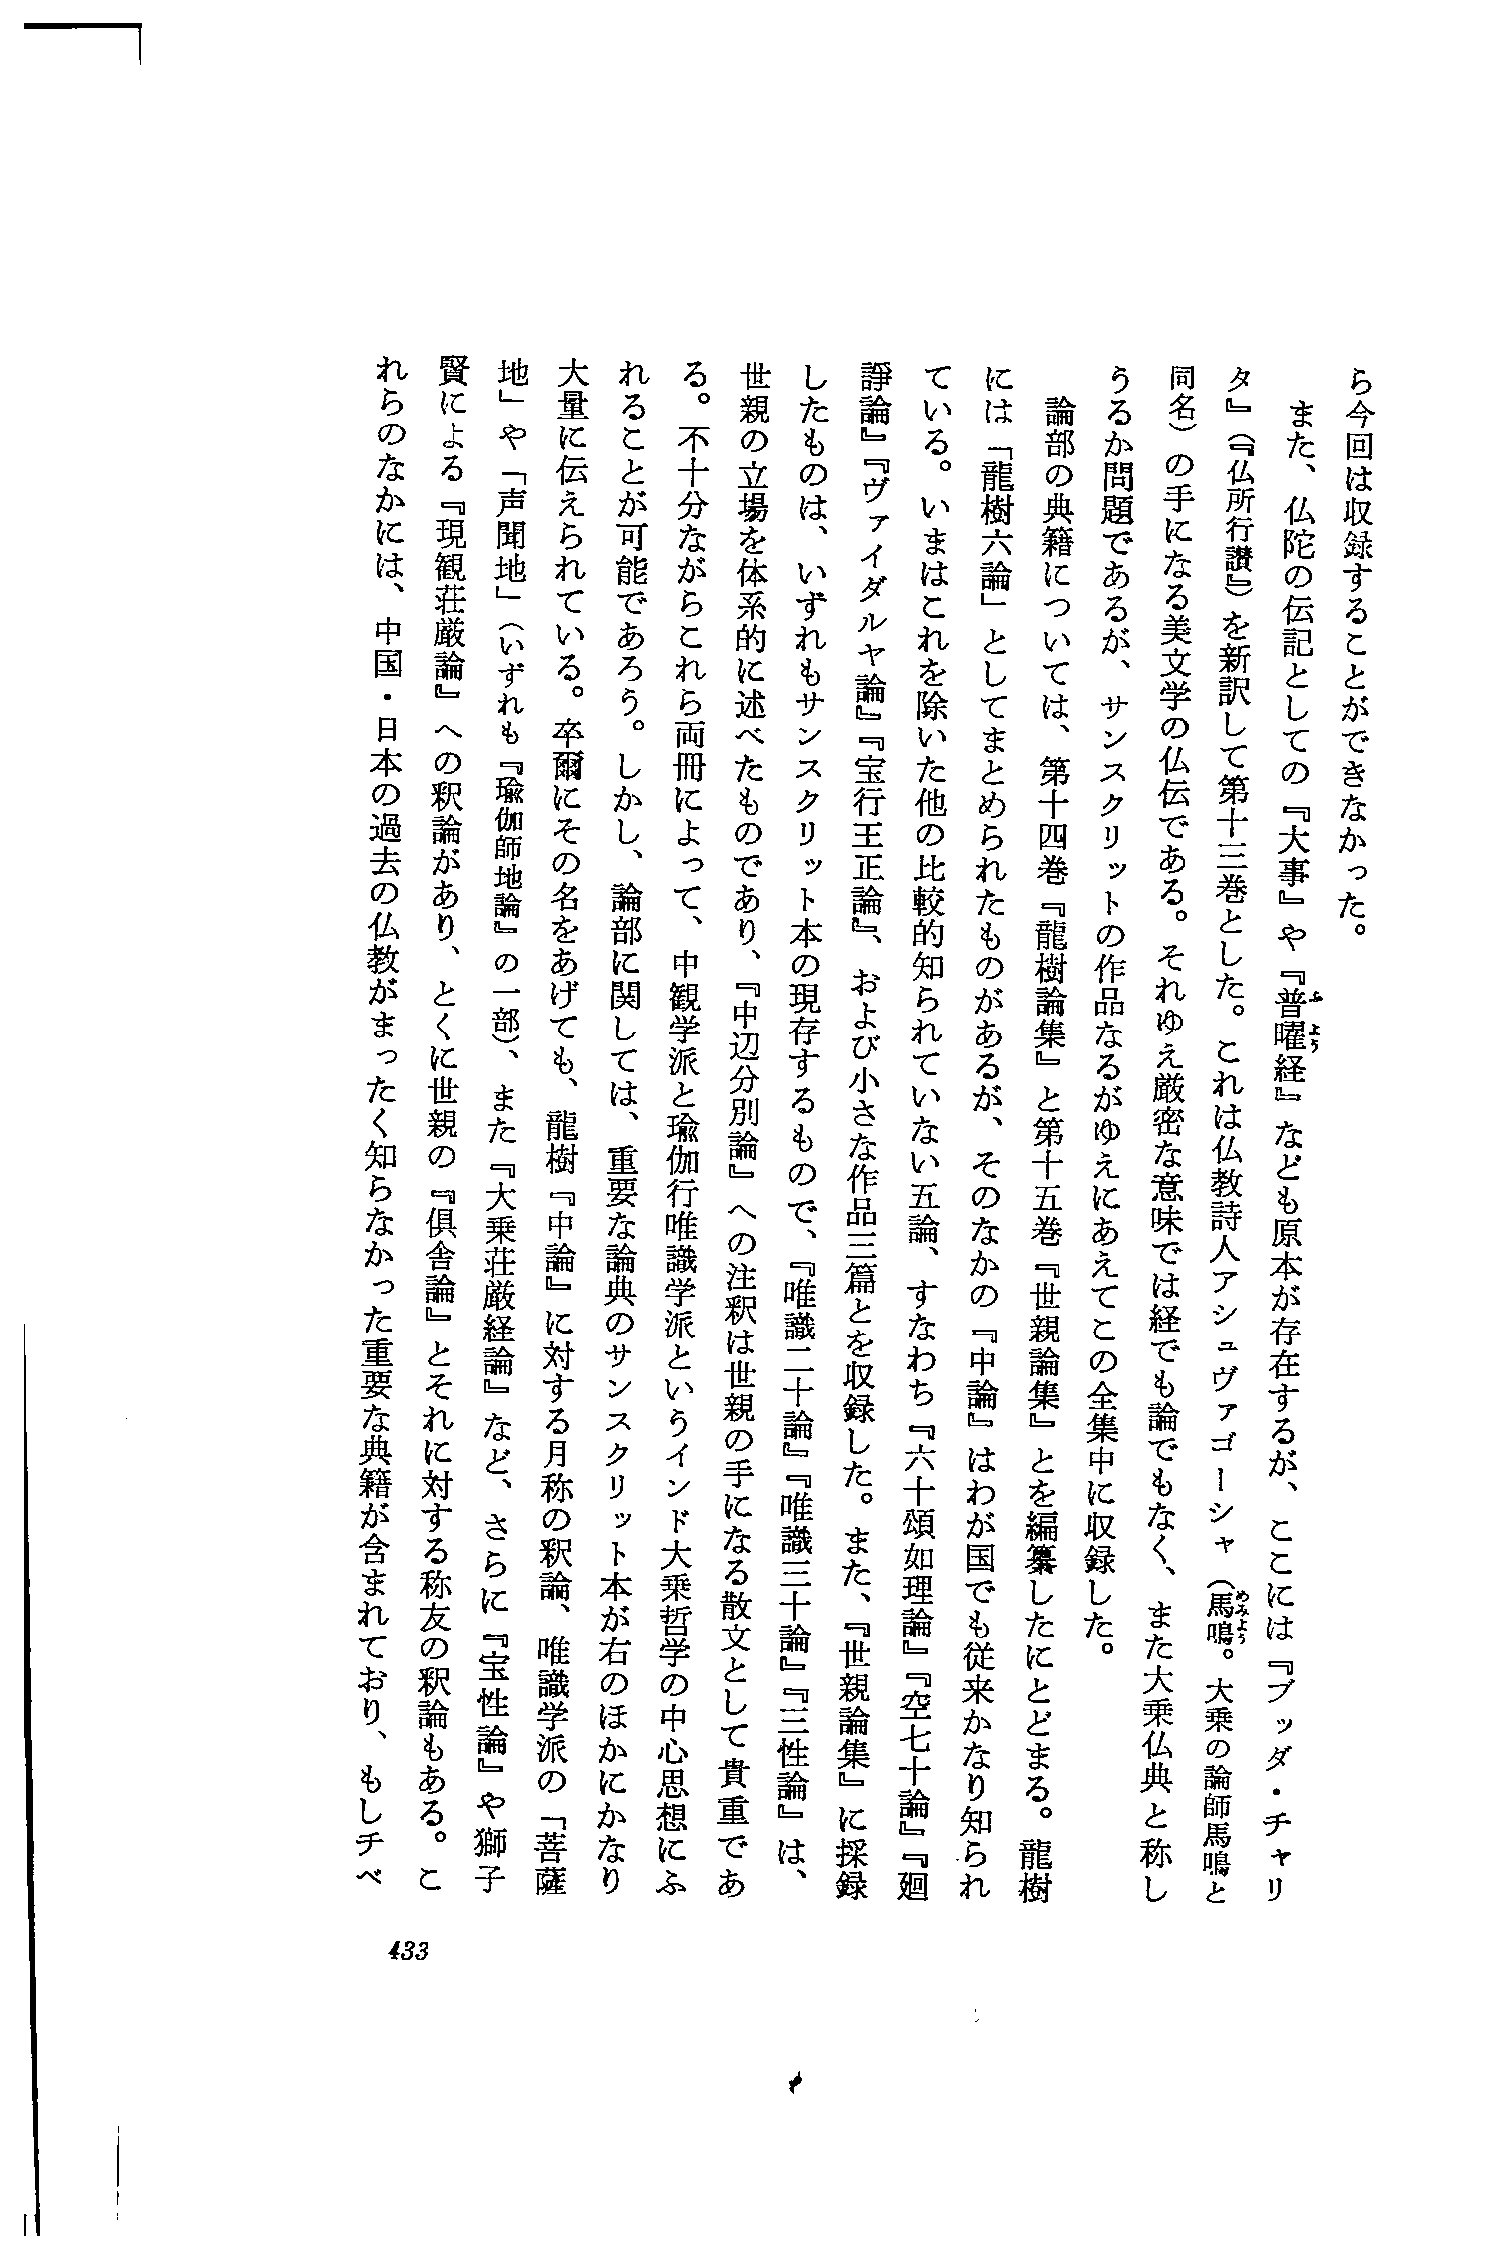 ら今回は収録することができなかった。
また、仏陀の伝記としての『大事』や『普曜経』なども原本が存在するが、ここには『ブッダ・チャリ
タ』（『仏所行讃』）を新訳して第十三巻とした。これは仏教詩人アシュヴァゴーシャ（馬鳴。大乗の論師馬鳴と
同名）の手になる美文学の仏伝である。それゆえ厳密な意味では経でも論でもなく、また大乗仏典と称し
うるか問題であるが、サンスクリットの作品なるがゆえにあえてこの全集中に収録した。
論部の典籍については、第十四巻『龍樹論集』と第十五巻『世親論集』とを編纂したにとどまる。龍樹
には「龍樹六論」としてまとめられたものがあるが、そのなかの『中論』はわが国でも従来かなり知られ
ている。いまはこれを除いた他の比較的知られていない五論、すなわち『六十頌如理論』『空七十論』『廻
諍論』『ヴァイダルヤ論』『宝行王正論』、および小さな作品三篇とを収録した。また、『世親論集』に採録
したものは、いずれもサンスクリット本の現存するもので、『唯識二十論』『唯識三十論』『三性論』は、
世親の立場を体系的に述べたものであり、『中辺分別論』への注釈は世親の手になる散文として貴重であ
る。不十分ながらこれら両冊によって、中観学派と瑜伽行唯識学派というインド大乗哲学の中心思想にふ
れることが可能であろう。しかし、論部に関しては、重要な論典のサンスクリット本が右のほかにかなり
大量に伝えられている。卒爾にその名をあげても、龍樹『中論』に対する月称の釈論、唯識学派の「菩薩
地」や「声聞地」（いずれも『瑜伽師地論』の一部）、また『大乗荘厳経論』など、さらに『宝性論』や獅子
賢による『現観荘厳論』への釈論があり、とくに世親の『倶舎論』とそれに対する称友の釈論もある。こ
れらのなかには、中国・日本の過去の仏教がまったく知らなかった重要な典籍が含まれており、もしチベ
433